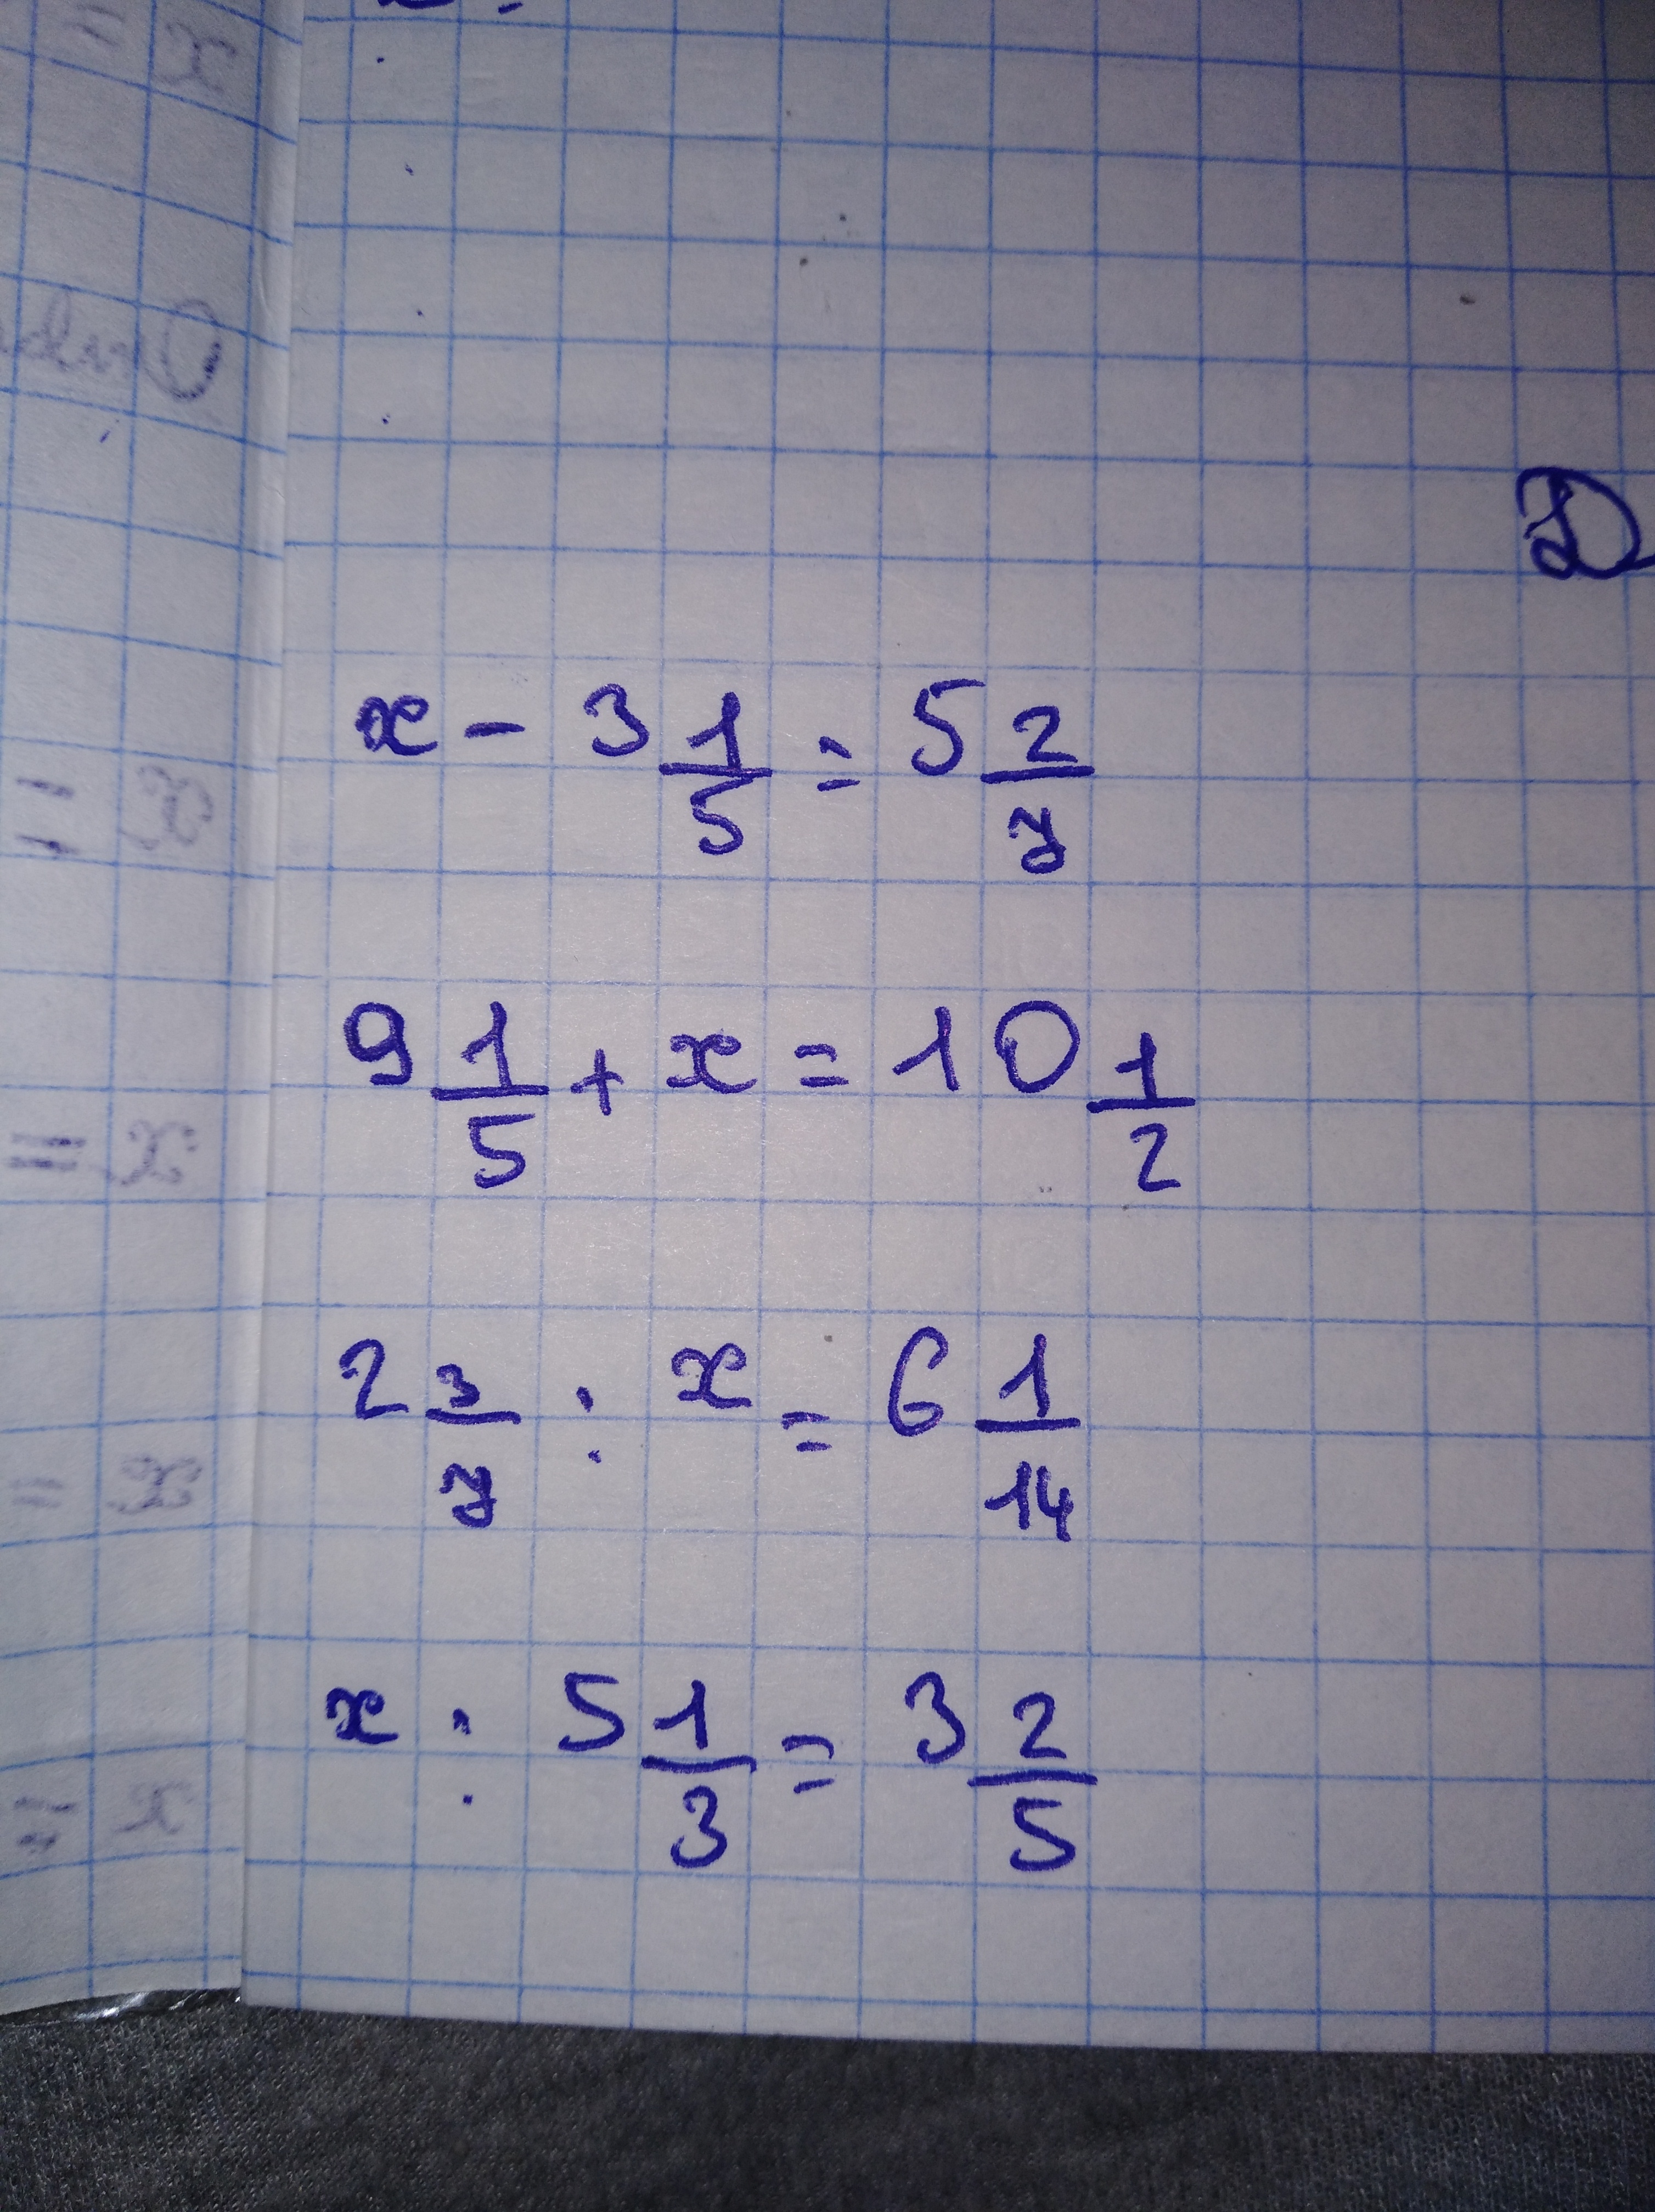 x - 3 1/5 = 5 2/7
9 1/5 + x = 10 1/2
2 3/7 : x = 6 1/14
x : 5 1/3 = 3 2/5